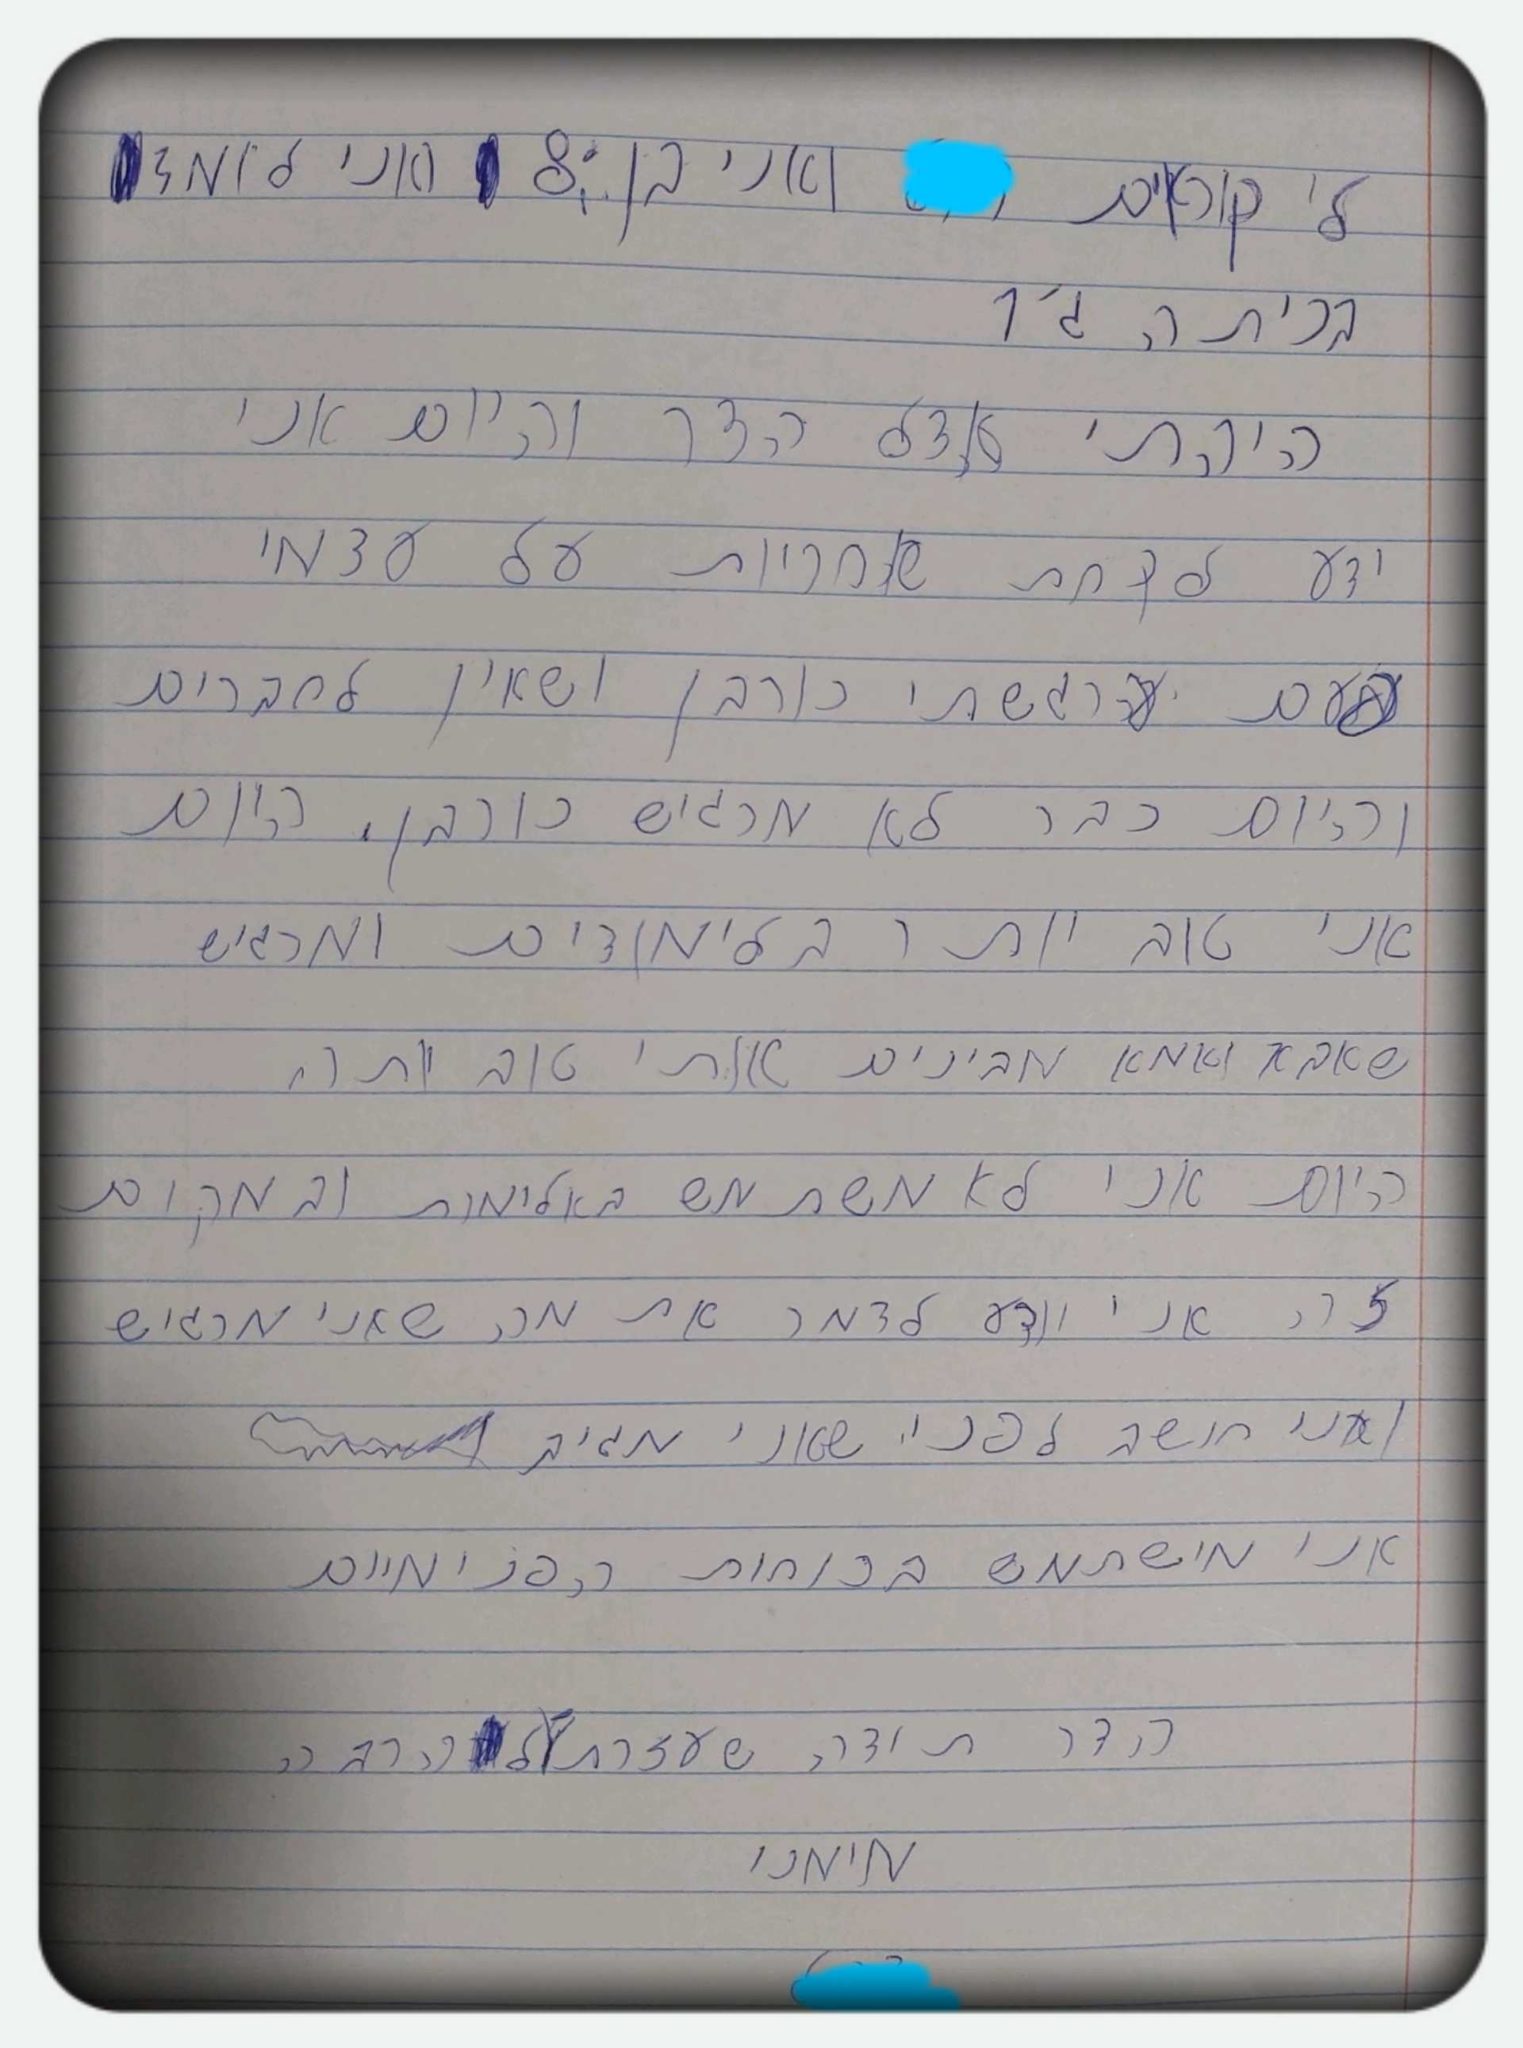 לי קוראים ואני בן 8 ואני לומד
בכיתה ג'1
הייתי אצל הדר והיום אני
ידע לקחת אחריות על עצמי
פעם הרגשתי כורבן ושאין לחברים
והיום כבר לא מרגיש כורבן, היום
אני טוב יותר בלימודים ומרגיש
שאבא ואמא מבינים אותי טוב יותר
היום אני לא משתמש באלימות ובמקום
זה אני יודע לדמר את מה שאני מרגיש
ואני חושב לפניי שאני מגיב
אני מישתמש בכוחות הפנימיים
הדר תודה שעזרת לי הרבה
מימני